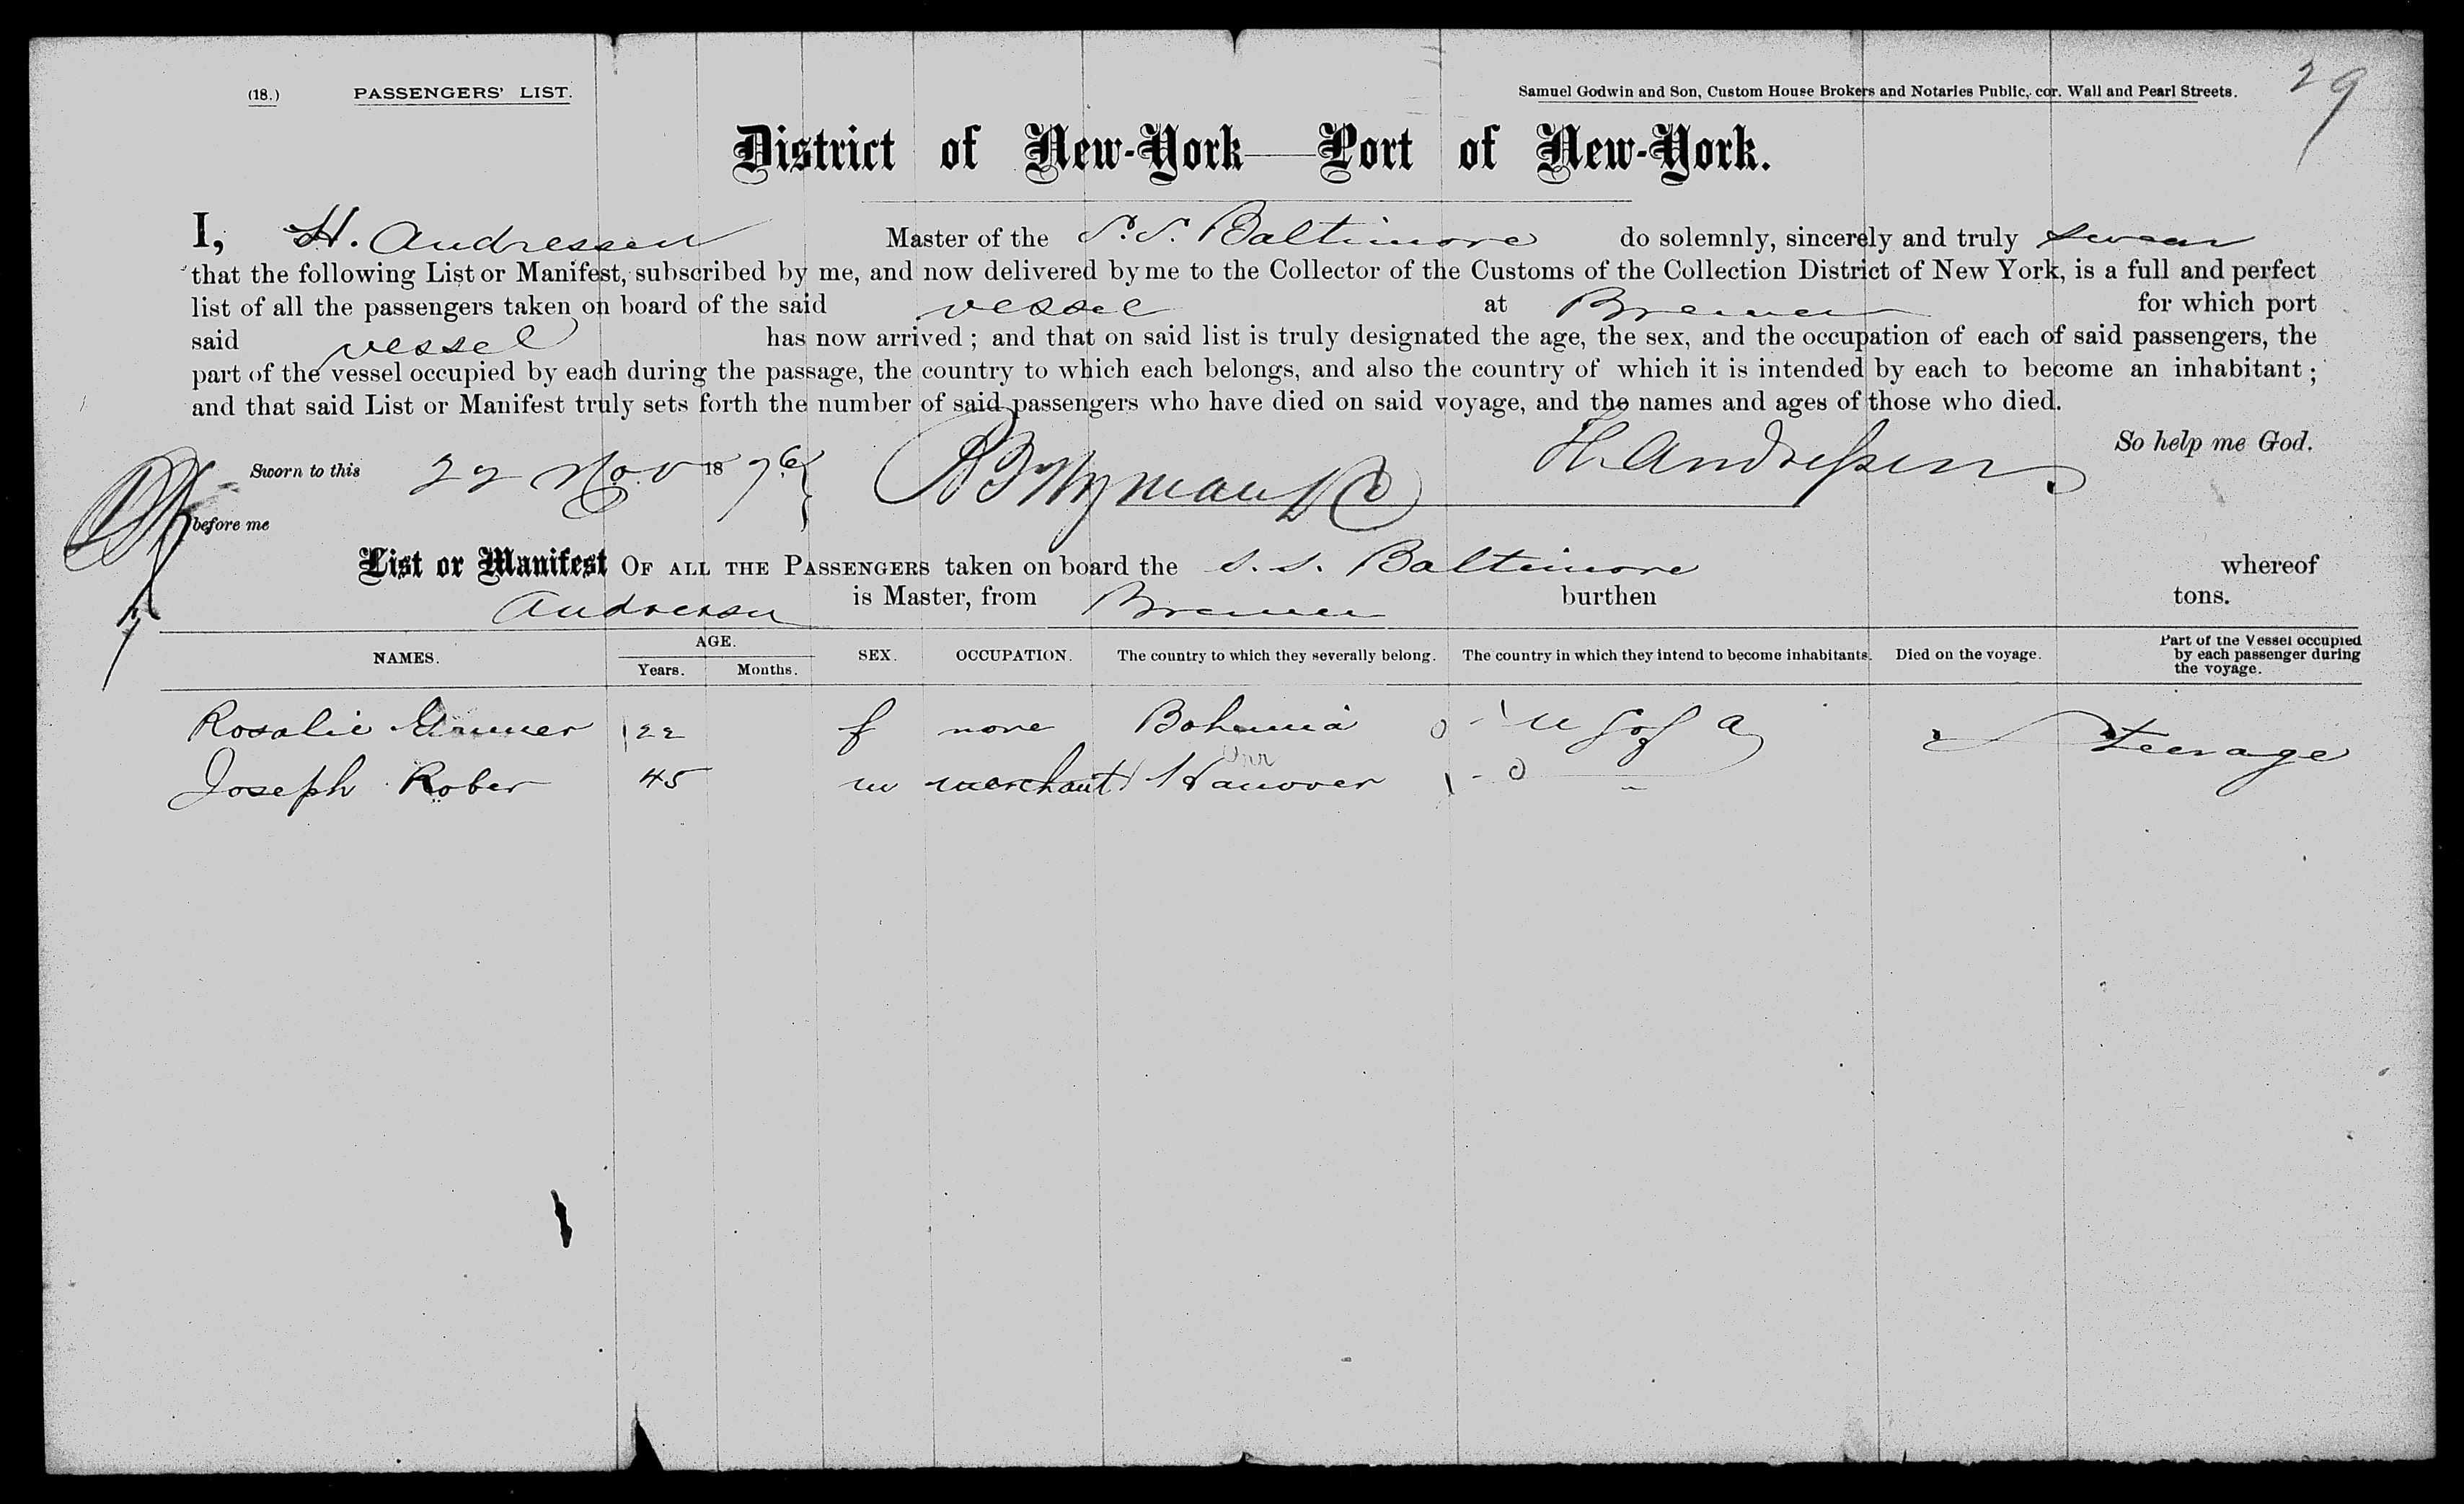 (18.) PASSENGERS' LIST. Samuel Godwin and Son, Custom House Brokers and Notaries Public, cor. Wall and Pearl Streets. 29
District of New-York—Port of New-York.
I, H. Andressen Master of the S.S. Baltimore do solemnly, sincerely and truly swear
that the following List or Manifest, subscribed by me, and now delivered by me to the Collector of the Customs of the Collection District of New York, is a full and perfect
list of all the passengers taken on board of the said vessel at Bremen for which port
said vessel has now arrived ; and that on said list is truly designated the age, the sex, and the occupation of each of said passengers, the
part of the vessel occupied by each during the passage, the country to which each belongs, and also the country of which it is intended by each to become an inhabitant ;
and that said List or Manifest truly sets forth the number of said passengers who have died on said voyage, and the names and ages of those who died.
So help me God.
Sworn to this 22 Nov 1876 H. Andressen
before me
List or Manifest OF ALL THE PASSENGERS taken on board the S. S. Baltimore whereof
Andressen is Master, from Bremen burthen tons.
NAMES. AGE. Years. Months. SEX. OCCUPATION. The country to which they severally belong. The country in which they intend to become inhabitants. Died on the voyage. Part of the Vessel occupied by each passenger during the voyage.
Rosalie 22 f none Bohemia U S of A Steerage
Joseph Rober 45 m merchant Hanover